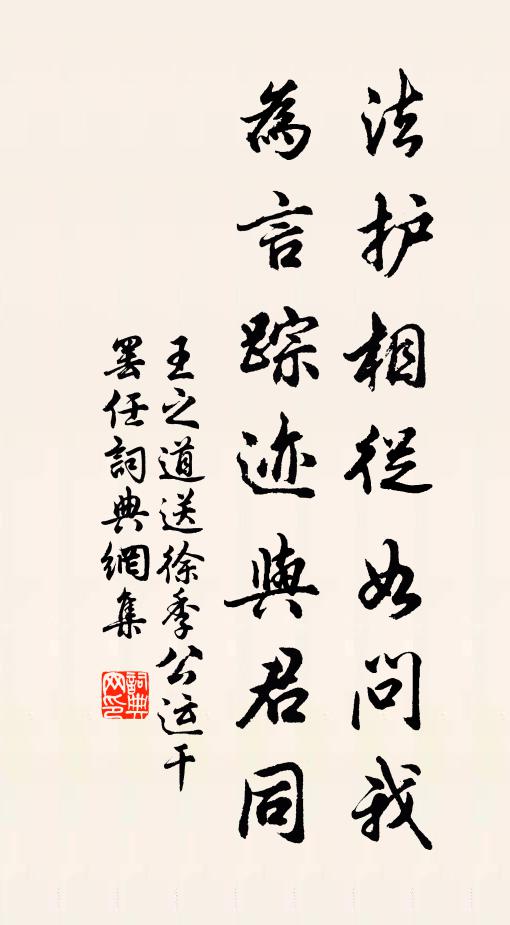 法护相從如問我
為言踪迹與君同
王之道送徐季公运干
罢任詞典網集
詞典网印